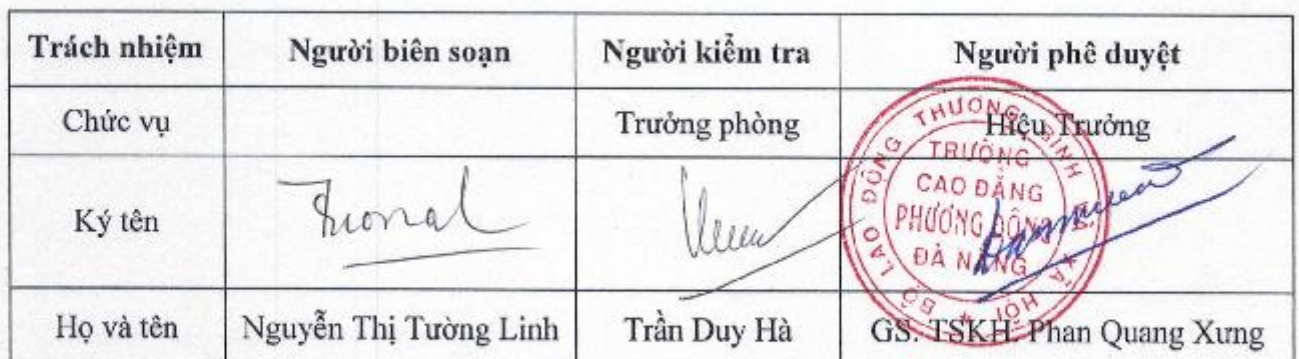 Trách nhiệm Người biên soạn Người kiểm tra Người phê duyệt
Chức vụ Trưởng phòng Hiệu Trưởng
Ký tên
Họ và tên Nguyễn Thị Tường Linh Trần Duy Hà GS. TSKH. Phan Quang Xưng
BỘ LAO ĐỘNG THƯƠNG BINH VÀ XÃ HỘI
TRƯỜNG
CAO ĐẲNG
PHƯƠNG ĐÔNG
ĐÀ NẴNG